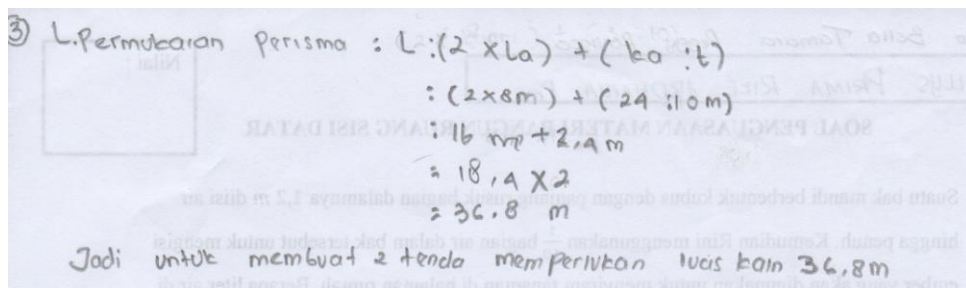 ③ L.Permukaian Perisma : L:(2 x La) + ( ka :t)
: (2x8m) + (24 :10m)
: 16 m + 2,4 m
= 18,4 x 2
= 36.8 m
Jadi untuk membuat 2 tenda memperlukan luas kain 36,8m